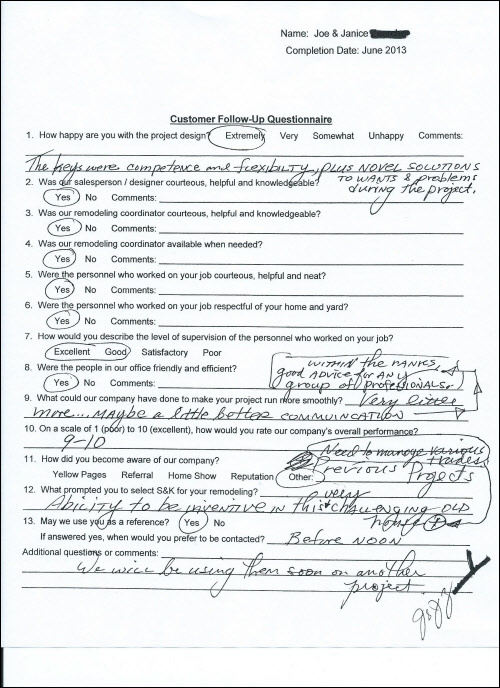 Name: Joe & Janice
Completion Date: June 2013
Customer Follow-Up Questionnaire
1. How happy are you with the project design? Extremely Very Somewhat Unhappy Comments:
The keys were competence and flexibilty, plus NOVEL SOLUTIONS
TO WANTS & problems
during the project.
2. Was our salesperson / designer courteous, helpful and knowledgeable?
Yes No Comments:
3. Was our remodeling coordinator courteous, helpful and knowledgeable?
Yes No Comments:
4. Was our remodeling coordinator available when needed?
Yes No Comments:
5. Were the personnel who worked on your job courteous, helpful and neat?
Yes No Comments:
6. Were the personnel who worked on your job respectful of your home and yard?
Yes No Comments:
7. How would you describe the level of supervision of the personnel who worked on your job?
Excellent Good Satisfactory Poor
8. Were the people in our office friendly and efficient?
Yes No Comments:
WITHIN the RANKS
good ADVICE for ANY
group of professionals.
9. What could our company have done to make your project run more smoothly? Very little
more... MAYBE a little better COMMUNCATION
10. On a scale of 1 (poor) to 10 (excellent), how would you rate our company's overall performance?
9-10
Need to manage various
trades
11. How did you become aware of our company?
Yellow Pages Referral Home Show Reputation Other: Previous Projects
12. What prompted you to select S&K for your remodeling?
Ability to be inventive in this very CHALLENGING OLD
house
13. May we use you as a reference? Yes No
If answered yes, when would you prefer to be contacted? Before NOON
Additional questions or comments:
We will be using them soon on another
project.